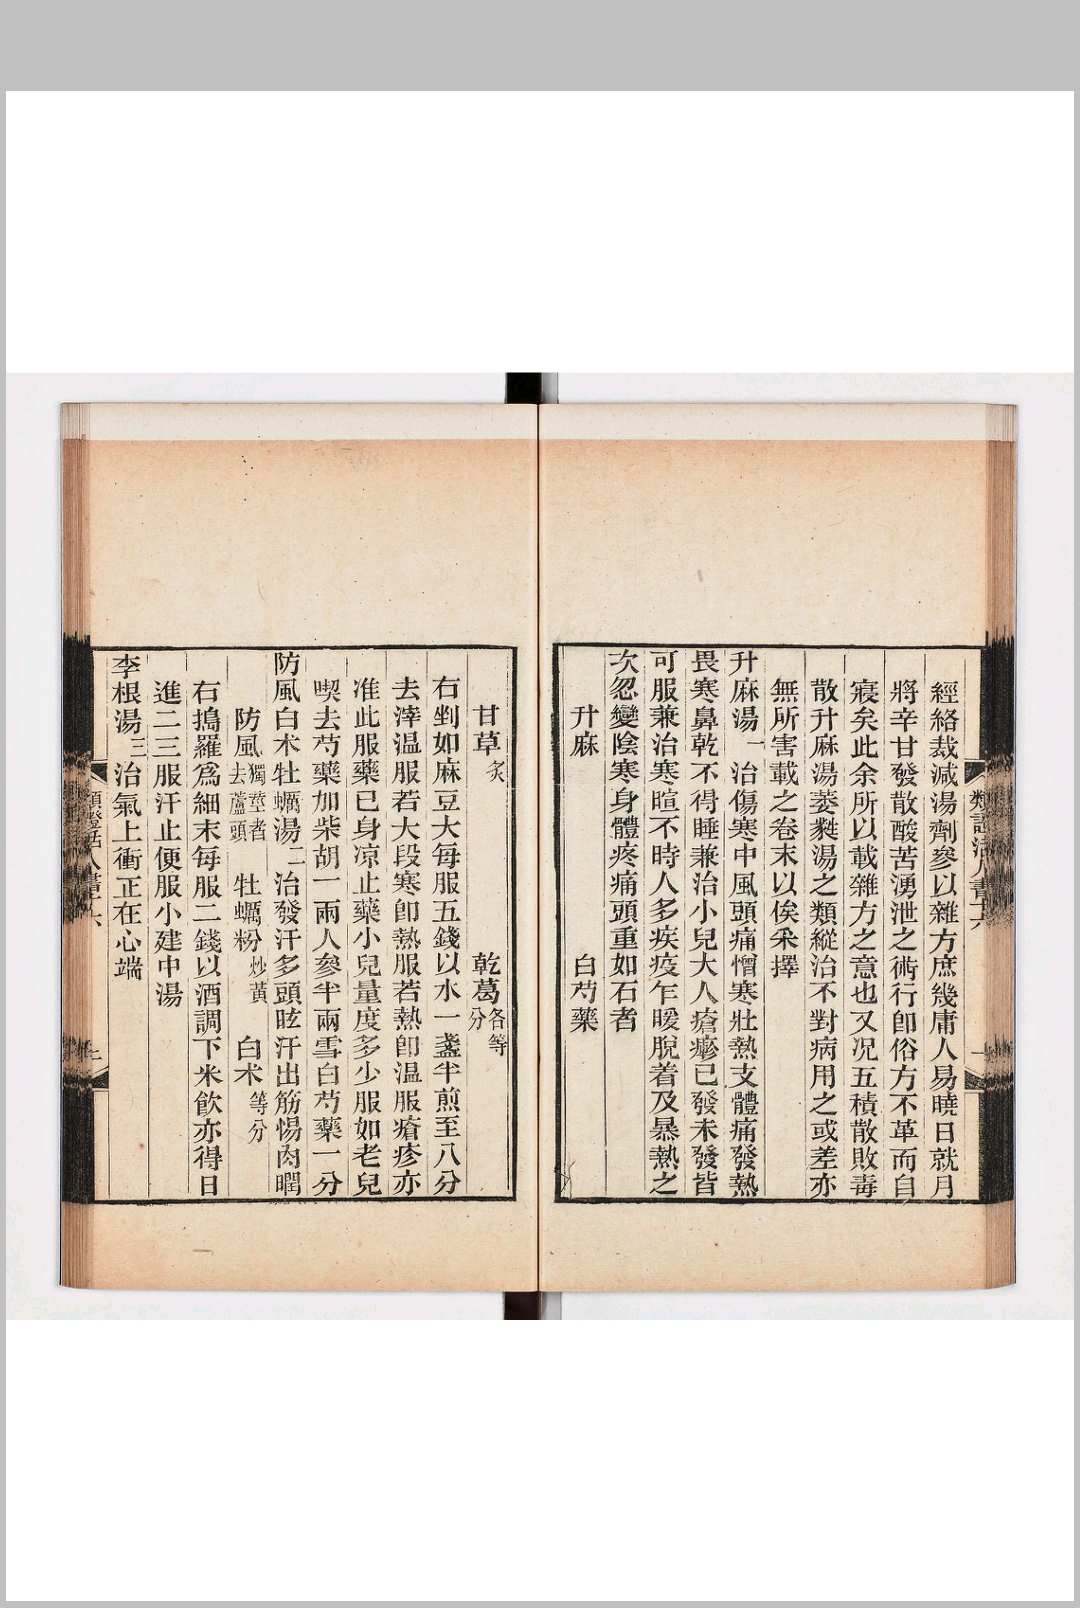 經絡裁減湯劑參以雜方庶幾庸人易曉日就月
將辛甘發散酸苦湧泄之術行卽俗方不革而自
寢矣此余所以載雜方之意也又况五積散敗毒
散升麻湯葳蕤湯之類縱治不對病用之或差亦
無所害載之卷末以俟采擇
升麻湯一治傷寒中風頭痛憎寒壯熱支體痛發熱
畏寒鼻乾不得睡兼治小兒大人瘡瘮已發未發皆
可服兼治寒暄不時人多疾疫乍暖脫着及暴熱之
次忽變陰寒身體疼痛頭重如石者
升麻 白芍藥
甘草炙 乾葛各等分
右剉如麻豆大每服五錢以水一盞半煎至八分
去滓溫服若大段寒卽熱服若熱卽温服瘡疹亦
准此服藥已身凉止藥小兒量度多少服如老兒
喫去芍藥加柴胡一兩人參半兩雪白芍藥一分
防風白朮牡蠣湯二治發汗多頭眩汗出筋惕肉瞤
防風獨莖者去蘆頭 牡蠣粉炒黃 白朮等分
右搗羅爲細末每服二錢以酒調下米飲亦得日
進二三服汗止便服小建中湯
李根湯三治氣上衝正在心端